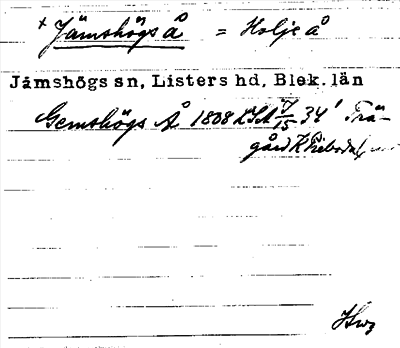 × Jämshögs å = Holje å
Jämshögs sn, Listers hd, Blek. län
Gemshögs Å 1808 LSA 7/15 34' Trä-
gård
Hwz